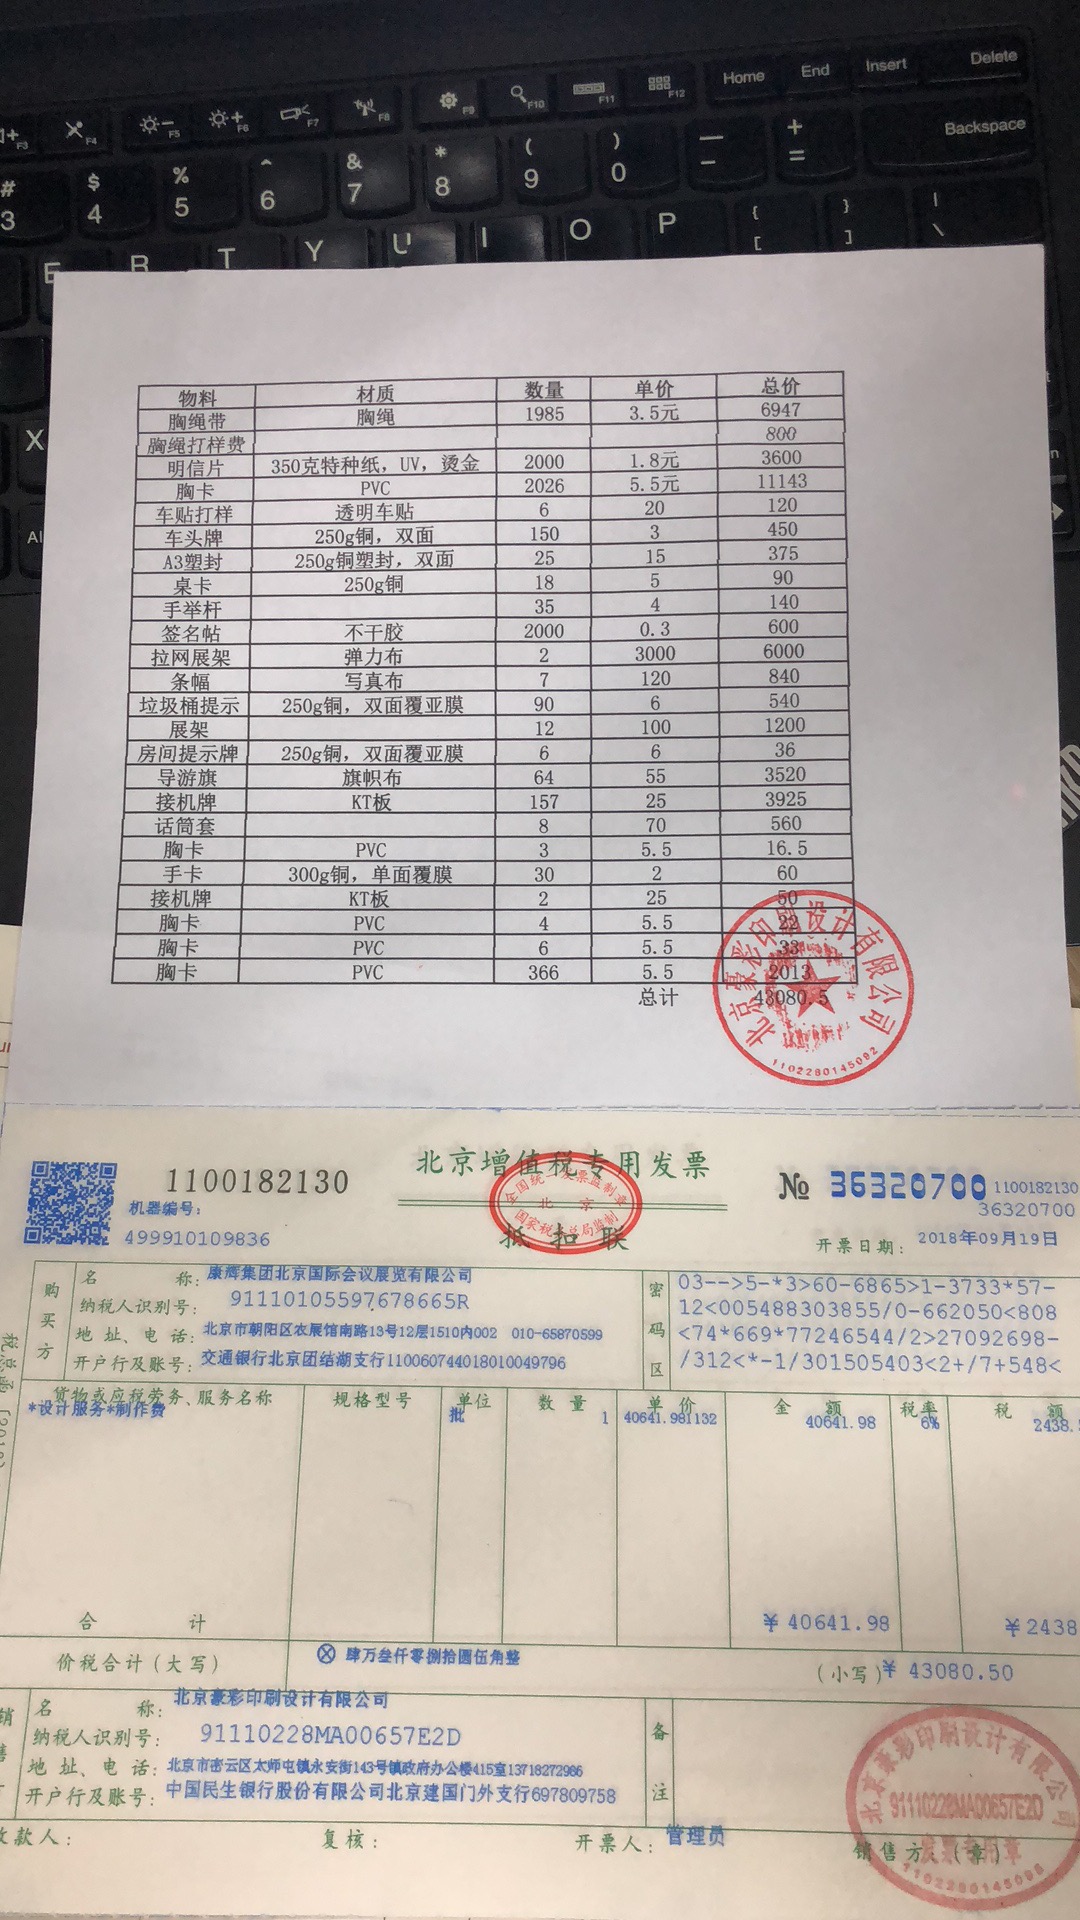 Home End Insert Delete
F3 F4 F5 F6 F7 F8 F9 F10 F11 F12
Backspace
# $ % ^ & * ( ) — +
3 4 5 6 7 8 9 0 - =
E R T Y U I O P { [ } ] | \
X
物料 材质 数量 单价 总价
胸绳带 胸绳 1985 3.5元 6947
胸绳打样费 800
明信片 350克特种纸，UV，烫金 2000 1.8元 3600
胸卡 PVC 2026 5.5元 11143
车贴打样 透明车贴 6 20 120
车头牌 250g铜，双面 150 3 450
A3塑封 250g铜塑封，双面 25 15 375
桌卡 250g铜 18 5 90
手举杆 35 4 140
签名帖 不干胶 2000 0.3 600
拉网展架 弹力布 2 3000 6000
条幅 写真布 7 120 840
垃圾桶提示 250g铜，双面覆亚膜 90 6 540
展架 12 100 1200
房间提示牌 250g铜，双面覆亚膜 6 6 36
导游旗 旗帜布 64 55 3520
接机牌 KT板 157 25 3925
话筒套 8 70 560
胸卡 PVC 3 5.5 16.5
手卡 300g铜，单面覆膜 30 2 60
接机牌 KT板 2 25 50
胸卡 PVC 4 5.5 22
胸卡 PVC 6 5.5 33
胸卡 PVC 366 5.5 2013
总计 43080.5
北京豪彩印刷设计有限公司
1102280145092
1100182130 北京增值税专用发票 № 36320700 1100182130
36320700
全国统一发票监制章
北京
国家税务总局监制
抵扣联
机器编号：
499910109836
开票日期： 2018年09月19日
购买方
名称： 康辉集团北京国际会议展览有限公司
纳税人识别号： 91110105597678665R
地址、电话： 北京市朝阳区农展馆南路13号12层1510内002 010-65870599
开户行及账号： 交通银行北京团结湖支行110060744018010049796
密码区
03-->5-*3>60-6865>1-3733*57-
12<005488303855/0-662050<808
<74*669*77246544/2>27092698-
/312<*-1/301505403<2+/7+548<
货物或应税劳务、服务名称 规格型号 单位 数量 单价 金额 税率 税额
*设计服务*制作费 批 1 40641.981132 40641.98 6% 2438.
合计 ￥40641.98 ￥2438
价税合计（大写） ⊗ 肆万叁仟零捌拾圆伍角整 （小写）￥43080.50
销售
名称： 北京豪彩印刷设计有限公司
纳税人识别号： 91110228MA00657E2D
地址、电话： 北京市密云区太师屯镇永安街143号镇政府办公楼415室13718272986
开户行及账号： 中国民生银行股份有限公司北京建国门外支行697809758
备注
收款人： 复核： 开票人： 管理员 销售方：（章）
北京豪彩印刷设计有限公司
91110228MA00657E2D
发票专用章